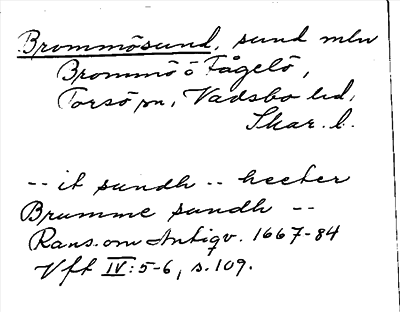 Brommösund, sund mln
Brommö o Fågelö,
Torsö sn, Vadsbo hd,
Skar. l.
-- it sundh -- heeter
Brumme sundh --
Rans. om Antiqv. 1667-84
Vft IV:5-6, s.109.